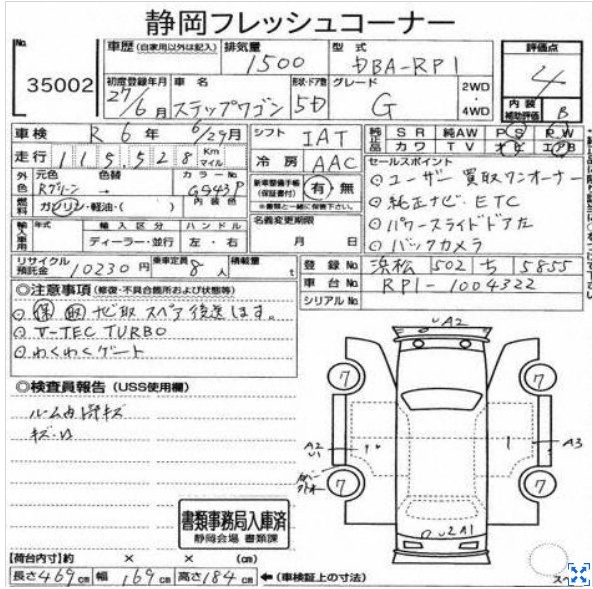 静岡フレッシュコーナー
No. 35002
車歴 (自家用以外は記入) 排気量 1500 型式 DBA-RP1
評価点 4
内装補助評価 B
初度登録年月 27/6月 車名 ステップワゴン 形状・ドア数 5D グレード G 2WD・4WD
車検 R6年 6/29月 シフト IAT
純正品 SR 純AW PS PW
カワ TV ナビ エアB
走行 115,528 Km マイル 冷房 AAC
セールスポイント
⊙ユーザー買取ワンオーナー
⊙純正ナビ. ETC
⊙パワースライドドア左
⊙バックカメラ
外色 元色 Rグリーン 色替 → カラーNo. G543P
新車整備手帳 (保証書付) 有・無
※書類と一緒に保管下さい。
燃料 ガソリン・軽油・( ) 内装色
名義変更期限 月 日
輸入車用 年式 輸入区分 ハンドル
ディーラー・並行 左・右
リサイクル預託金 10230円 乗車定員 8人 積載量 t
登録No. 浜松 502 ち 5855
車台No. RP1-1004322
シリアルNo.
◎注意事項 (修復・不具合箇所および状態等)
⊙保 取 スペア後送します。
⊙V-TEC TURBO
⊙わくわくゲート
◎検査員報告 (USS使用欄)
ルーム内
キズ・U
書類事務局入庫済
静岡会場 書類課
A2
7 7
A2 U1
A3
7 7
U2A1
スペ
【荷台内寸】約 × × (cm)
長さ469cm 幅169cm 高さ184cm ←(車検証上の寸法)